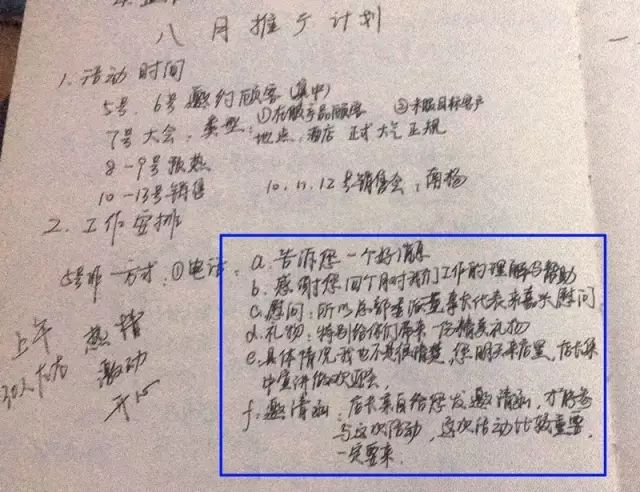 八月推广计划
1. 活动时间
5号、6号邀约顾客(集中)
7号大会, 类型: ①在服产品顾客 ②未服目标客户
地点: 酒店 正式 大气 正规
8-9号预热
10-13号销售 10.11.12号销售会,
2. 工作安排
5号 方式: ①电话: a. 告诉您一个好消息
b. 感谢您 个月对我们工作的理解与帮助
c. 慰问: 所以总部 董事长代表来 慰问
d. 礼物: 特别给你们带来一份精美礼物
e. 具体情况我也不是很清楚, 您明天来店里, 店长集
中宣讲 欢迎会.
f. 邀请函: 店长亲自给您发邀请函, 才能参
与这次活动, 这次活动比较重要,
一定要来.
上午 热情
激动